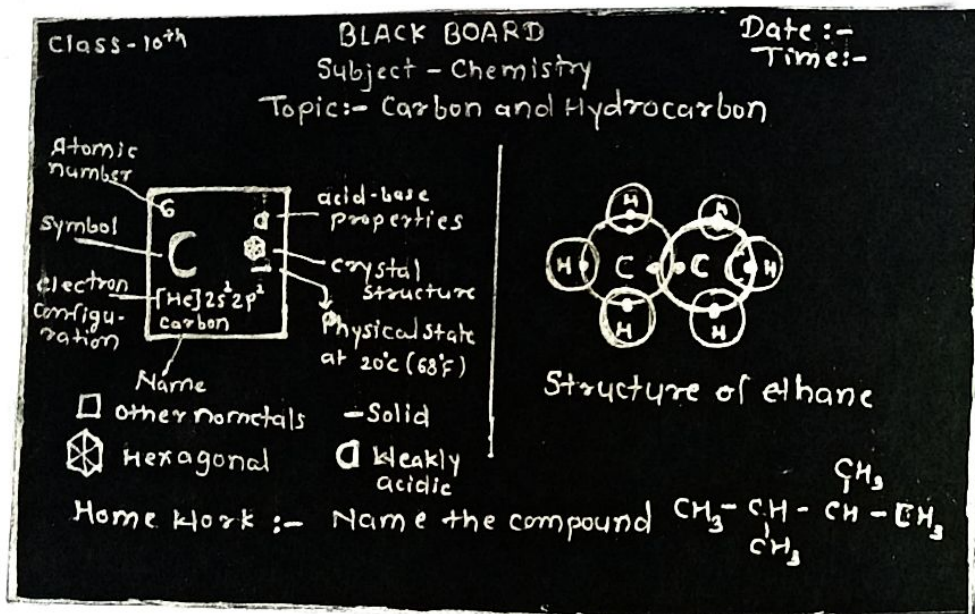 Class-10th
BLACK BOARD
Date :-
Time:-
Subject - Chemistry
Topic:- Carbon and Hydrocarbon
Atomic
number
Symbol
electron
configu-
ration
6
C
[He]2s²2p²
carbon
Name
acid-base
properties
crystal
structure
Physical state
at 20°c (68°F)
other nometals
- Solid
Hexagonal
Weakly
acidic
H H
H C C H
H H
Structure of ethane
Home Work :- Name the compound CH₃ - CH - CH - CH₃
CH₃
CH₃